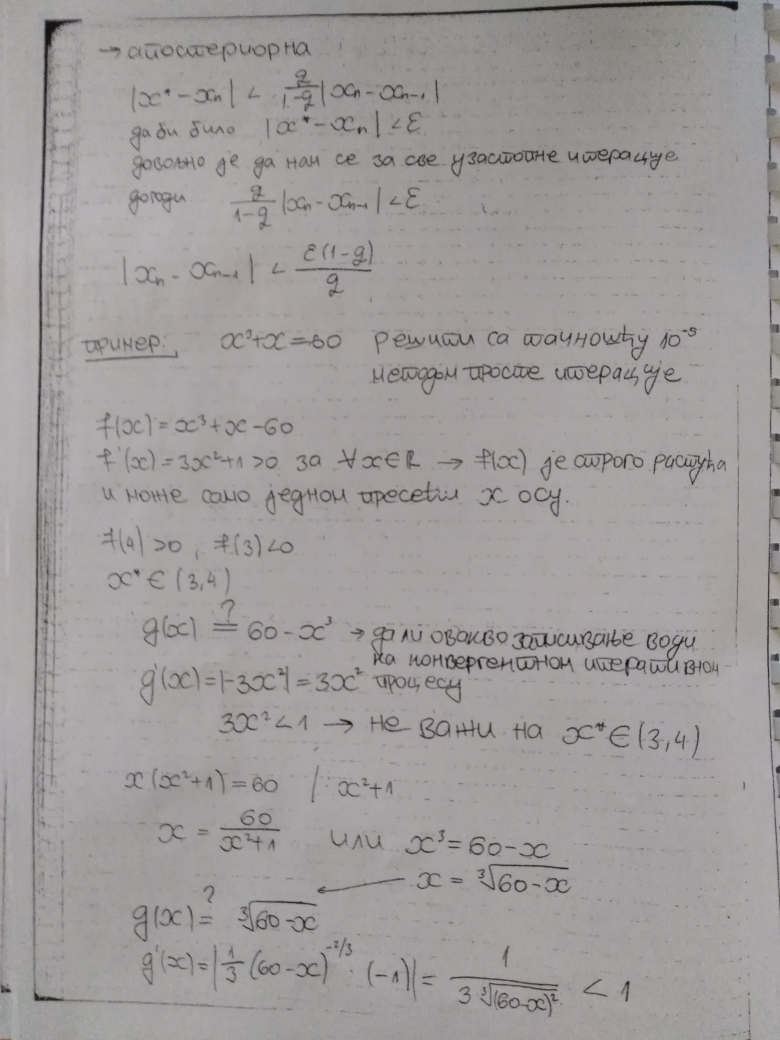 → апостериорна
|x* - xn| < q/(1-q) |xn - xn-1|
да би било |x* - xn| < ε
довољно је да нам се за све узастопне итерације
догоди q/(1-q) |xn - xn-1| < ε
|xn - xn-1| < ε(1-q)/q
пример: x³+x=60 решити са тачношћу 10⁻⁵
методом просте итерације
f(x) = x³+x-60
f'(x) = 3x²+1 >0 за ∀x∈R → f(x) је строго растућа
и може само једном пресећи x осу.
f(4) >0, f(3)<0
x* ∈ (3,4)
g(x) ?= 60-x³ → да ли овакво записивање води
ка конвергентном итеративном
g'(x) = |-3x²| = 3x² процесу
3x² < 1 → не важи на x* ∈ (3,4)
x(x²+1) = 60 / : x²+1
x = 60/(x²+1) или x³ = 60-x
x = ∛(60-x)
g(x) ?= ∛(60-x)
g'(x) = |1/3 (60-x)^(-2/3) · (-1)| = 1/(3∛(60-x)²) < 1